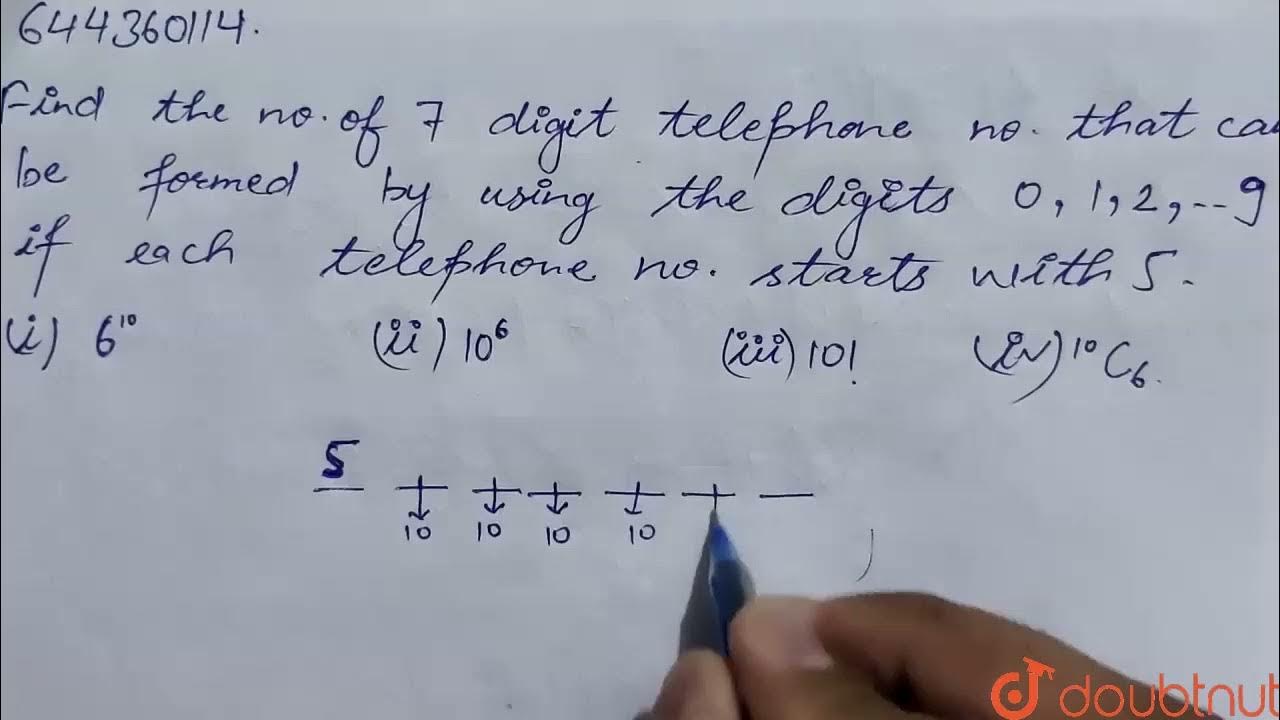 644360114.
Find the no. of 7 digit telephone no. that ca
be formed by using the digits 0, 1, 2, -- 9
if each telephone no. starts with 5.
(i) 6¹⁰ (ii) 10⁶ (iii) 10! (iv) ¹⁰C₆.
5
10 10 10 10
doubtnut